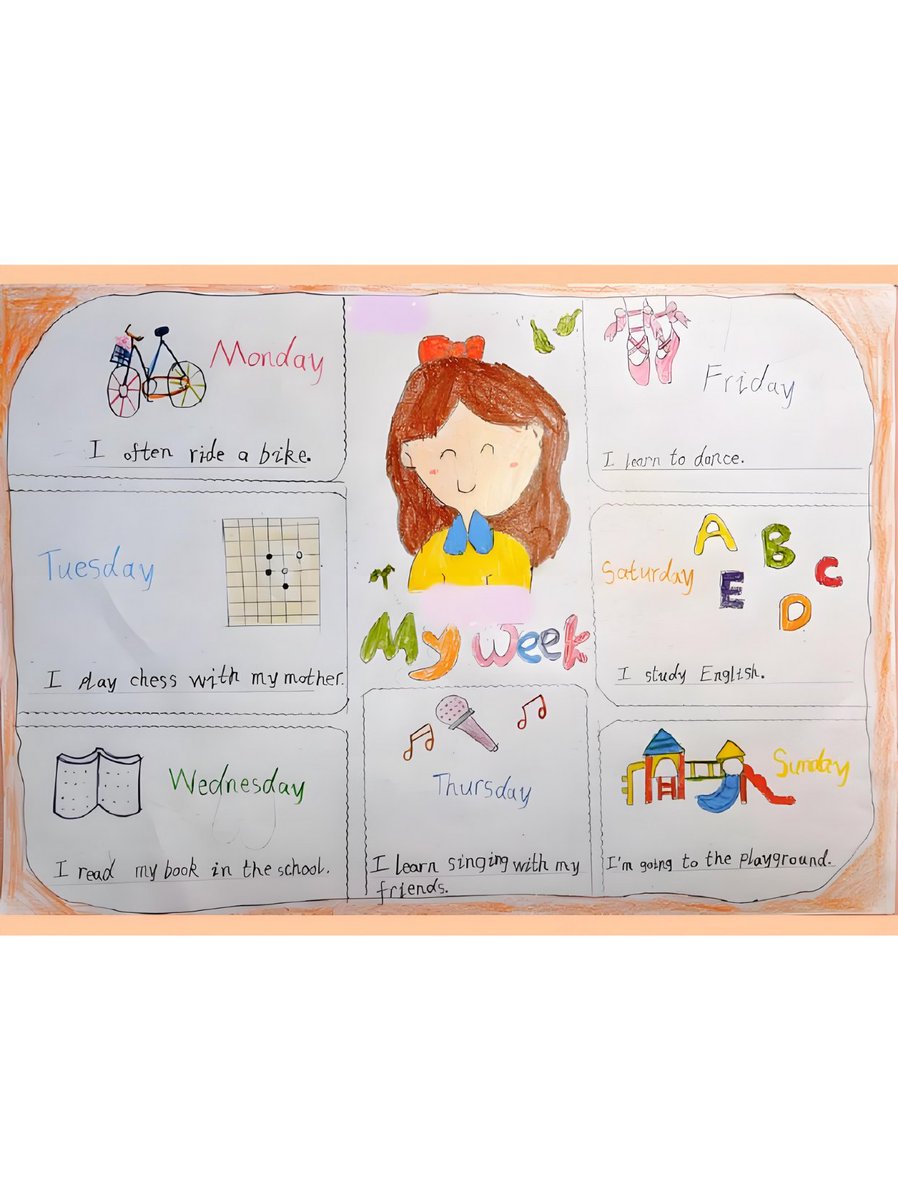 Monday
I often ride a bike.
Tuesday
I play chess with my mother.
Wednesday
I read my book in the school.
My week
Thursday
I learn singing with my
friends.
Friday
I learn to dance.
Saturday
A B C
E D
I study English.
Sunday
I'm going to the playground.